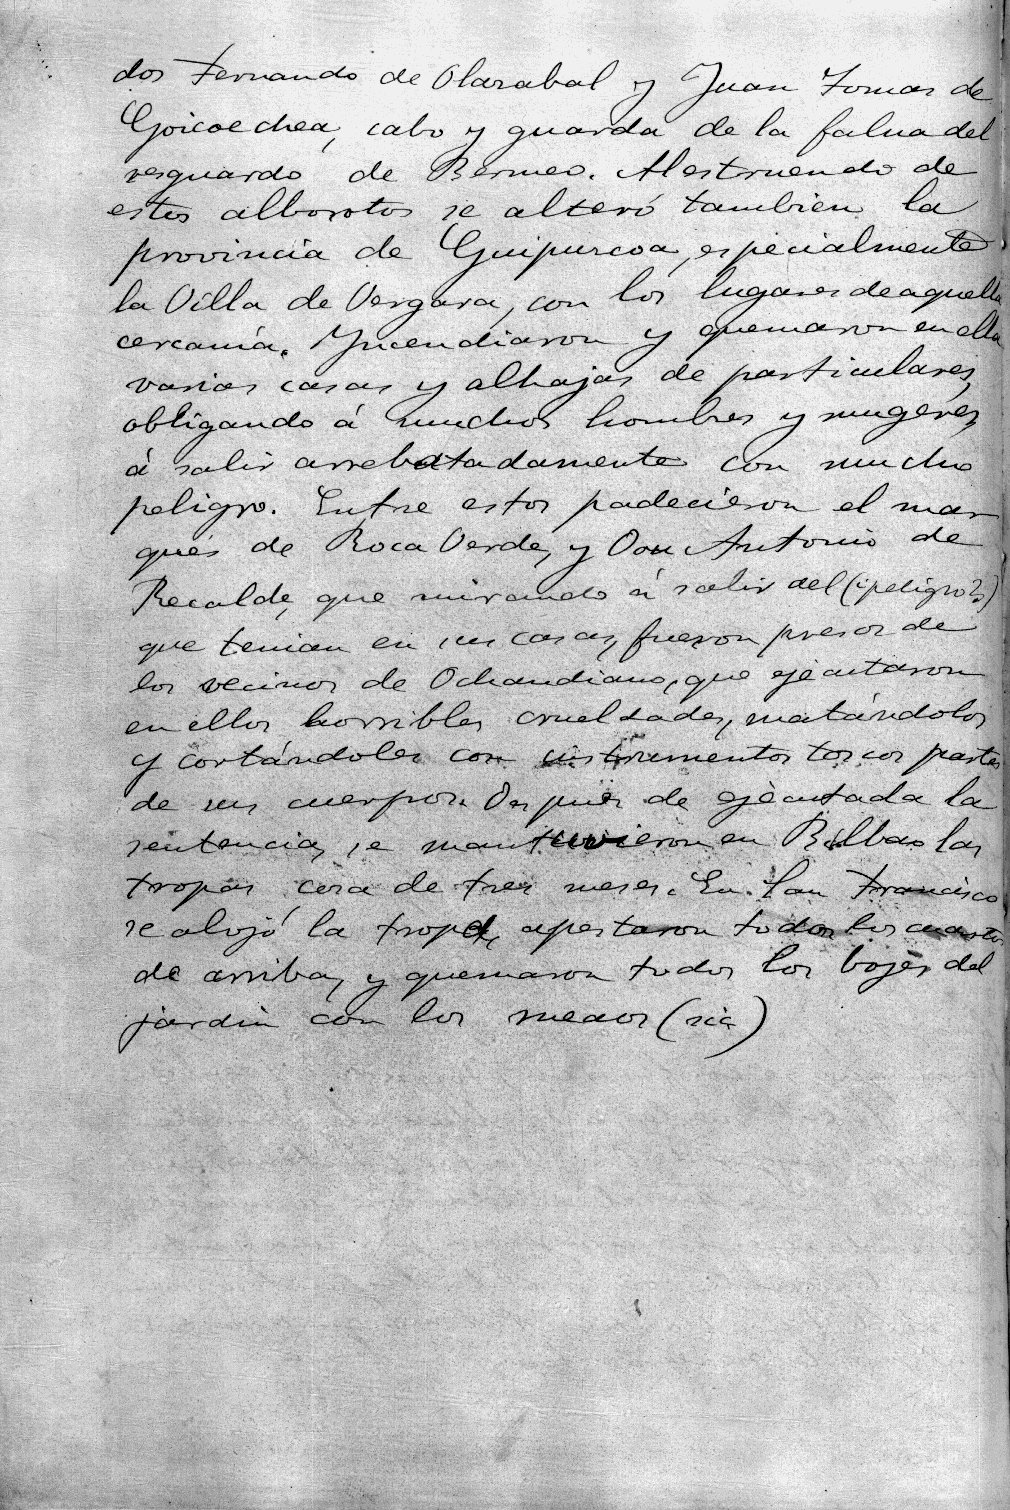 dos Fernando de Olarabal y Juan Tomas de
Goicoechea, cabo y guarda de la falua del
resguardo de Bermeo. Al estruendo de
estos alborotos se alteró tambien la
provincia de Guipurcoa, especialmente
la Villa de Vergara, con los lugares de aquella
cercanía. Yncendiaron y quemaron en ella
varias casas y alhajas de particulares,
obligando á muchos hombres y mugeres,
á salir arrebatadamente con mucho
peligro. Entre estos padecieron el mar
qués de Roca Verde, y Don Antonio de
Recalde, que mirando á salir del (¿peligro?)
que tenian en sus casas, fueron presos de
los vecinos de Ochandiano, que ejecutaron
en ellos horribles crueldades, matándolos
y cortándoles con instrumentos toscos partes
de sus cuerpos. Despues de ejecutada la
sentencia, se mantuvieron en Bilbao las
tropas cosa de tres meses. En San Francisco
se alojó la tropa, apestaron todos los cuartos
de arriba, y quemaron todos los bojes del
jardin con los meaos (sic)